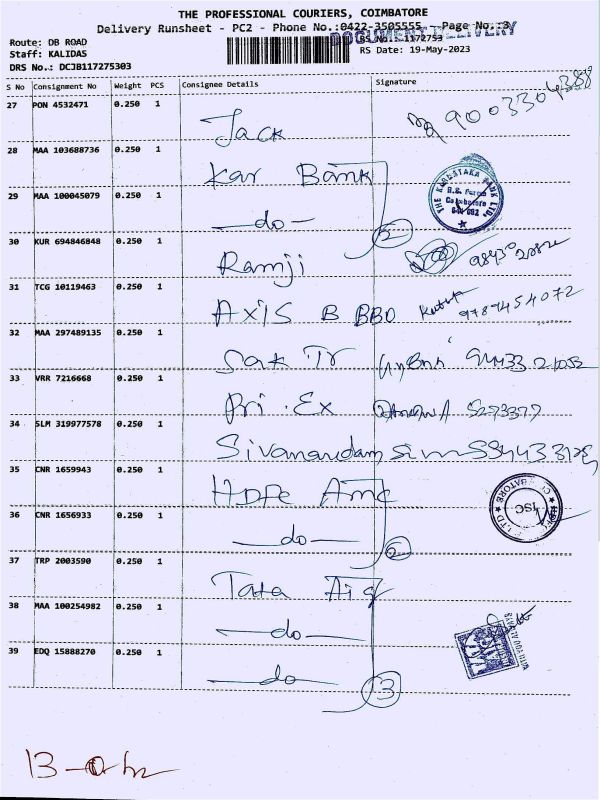 THE PROFESSIONAL COURIERS, COIMBATORE
Delivery Runsheet - PC2 - Phone No.:0422-3505555 - Page No.:3
DOCUMENT DELIVERY
Route: DB ROAD RS No.: 1172753
Staff: KALIDAS RS Date: 19-May-2023
DRS No.: DCJB117275303
S No Consignment No Weight PCS Consignee Details Signature
27 PON 4532471 0.250 1 Jack 9003304388
28 MAA 103688736 0.250 1 Kar Bank
THE KARNATAKA BANK LTD. R.S. Puram Coimbatore
29 MAA 100045079 0.250 1 -do- 2
30 KUR 694846848 0.250 1 Ramji
31 TCG 10119463 0.250 1 AXIS B BBD 9787454072
32 MAA 297489135 0.250 1
33 VRR 7216668 0.250 1 Pri . Ex
34 SLM 319977578 0.250 1 Sivanandam
35 CNR 1659943 0.250 1 HDFC Amc
36 CNR 1656933 0.250 1 -do- 2
37 TRP 2003590 0.250 1 Tata Aig
38 MAA 100254982 0.250 1 -do-
39 EDQ 15888270 0.250 1 -do- 3